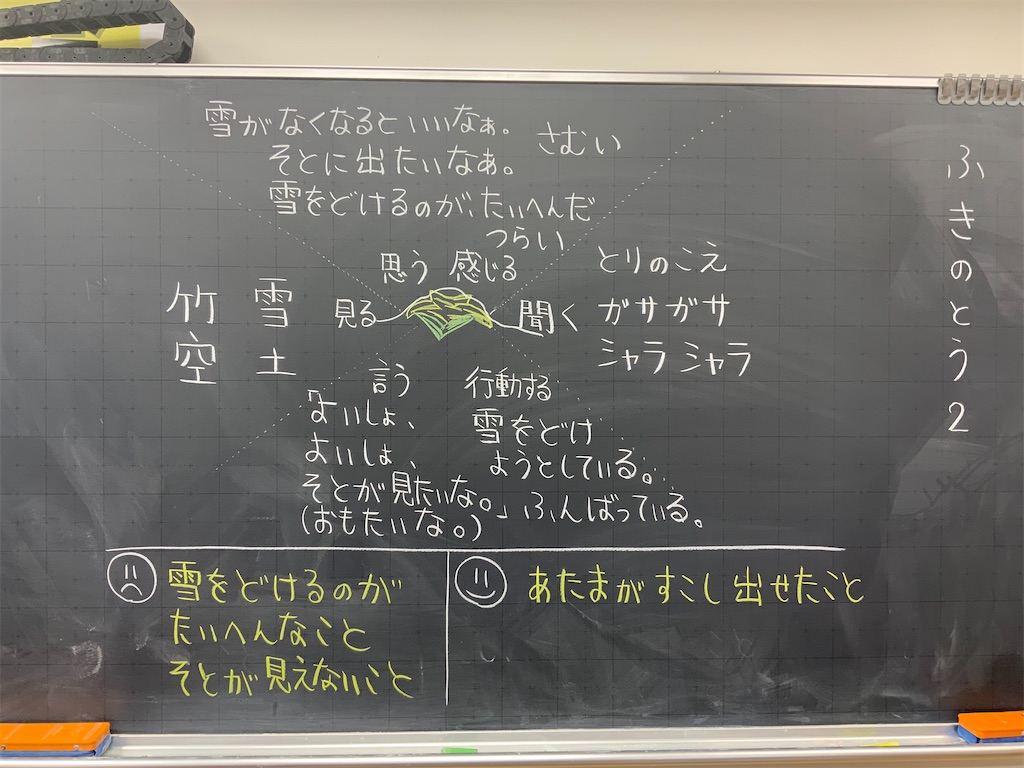 ふきのとう2
雪がなくなるといいなぁ。
そとに出たいなぁ。
さむい
雪をどけるのが、たいへんだ
つらい
思う
感じる
見る
雪
土
竹
空
聞く
とりのこえ
ガサガサ
シャラシャラ
言う
「よいしょ、
よいしょ、
そとが見たいな。」
(おもたいな。)
行動する
雪をどけ
ようとしている。
ふんばっている。
雪をどけるのが
たいへんなこと
そとが見えないこと
あたまがすこし出せたこと